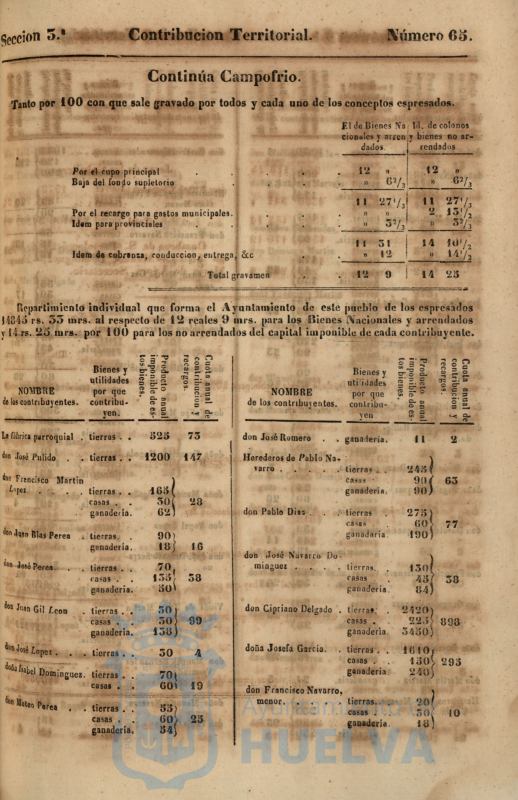 Seccion 3.ª Contribucion Territorial. Número 65.
Continúa Campofrio.
Tanto por 100 con que sale gravado por todos y cada uno de los conceptos espresados.
El de Bienes Na Id. de colonos
cionales y arren y bienes no ar-
dados. rendados
Por el cupo principal . . . . 12 » 12 »
Baja del fondo supletorio . . . » 6²/₃ » 6²/₃
11 27¹/₃ 11 27¹/₃
Por el recargo para gastos municipales. . . » » 2 13¹/₂
Idem para provinciales . . . . » 3²/₃ » 3²/₃
11 31 14 10¹/₂
Idem de cobranza, conduccion, entrega, &c . . » 12 » 14¹/₂
Total gravamen . . 12 9 14 25
Repartimiento individual que forma el Ayuntamiento de este pueblo de los espresados
14845 rs. 33 mrs. al respecto de 12 reales 9 mrs. para los Bienes Nacionales y arrendados
y 14 rs. 25 mrs. por 100 para los no arrendados del capital imponible de cada contribuyente.
NOMBRE
de los contribuyentes.
Bienes y
utilidades
por que
contribu-
yen.
Producto anual
imponible de es-
tos bienes.
Cuota anual de
contribucion y
recargos.
La fábrica parroquial . tierras . . 525 73
don José Pulido . . tierras . . 1200 147
don Francisco Martin
Lopez . . . . tierras . . 165
casas . . 30 28
ganadería. 62
don Juan Blas Perea . tierras. . 90
ganadería. 18 16
don José Perea . . tierras. . 70
casas . . 135 38
ganadería. 50
don Juan Gil Leon . tierras . . 50
casas . . 30 99
ganadería. 138
don José Lopez . . . tierras . . 30 4
doña Isabel Dominguez. tierras . . 70
casas . . 60 19
don Mateo Perea . . tierras . . 55
casas . . 60 25
ganadería. 54
NOMBRE
de los contribuyentes.
Bienes y
utilidades
por que
contribu-
yen
Producto anual
imponible de es-
tos bienes.
Cuota anual de
contribucion y
recargos.
don José Romero . . ganadería. 11 2
Herederos de Pablo Na-
varro . . . . . tierras . . 245
casas . . 90 63
ganadería. 90
don Pablo Diaz . . . tierras . . 275
casas . . 60 77
ganadaria. 190
don José Navarro Do-
minguez . . . . tierras. . 130
casas . . 45 38
ganadería. 84
don Cipriano Delgado . tierras. . 2420
casas . . 225 898
ganadería. 3430
doña Josefa García. . tierras . . 1610
casas . . 130 293
ganadería. 240
don Francisco Navarro,
menor. . . . tierras. . . 20
casas . . 30 10
ganadería. 18
Ayuntamiento de
HUELVA